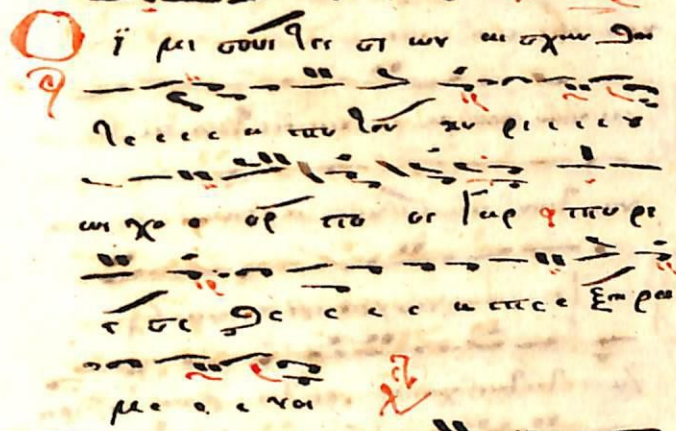 Ο ϊ μι σουν τες σι ων αι σχυν θη
τε ε ε ε α πο του κυ ρι ι ι ι ου
ως χο ο ορ το ος γαρ πυ ρι
ε σε σθε ε ε ε α πε ε ξη ραμ
με ε ε νοι